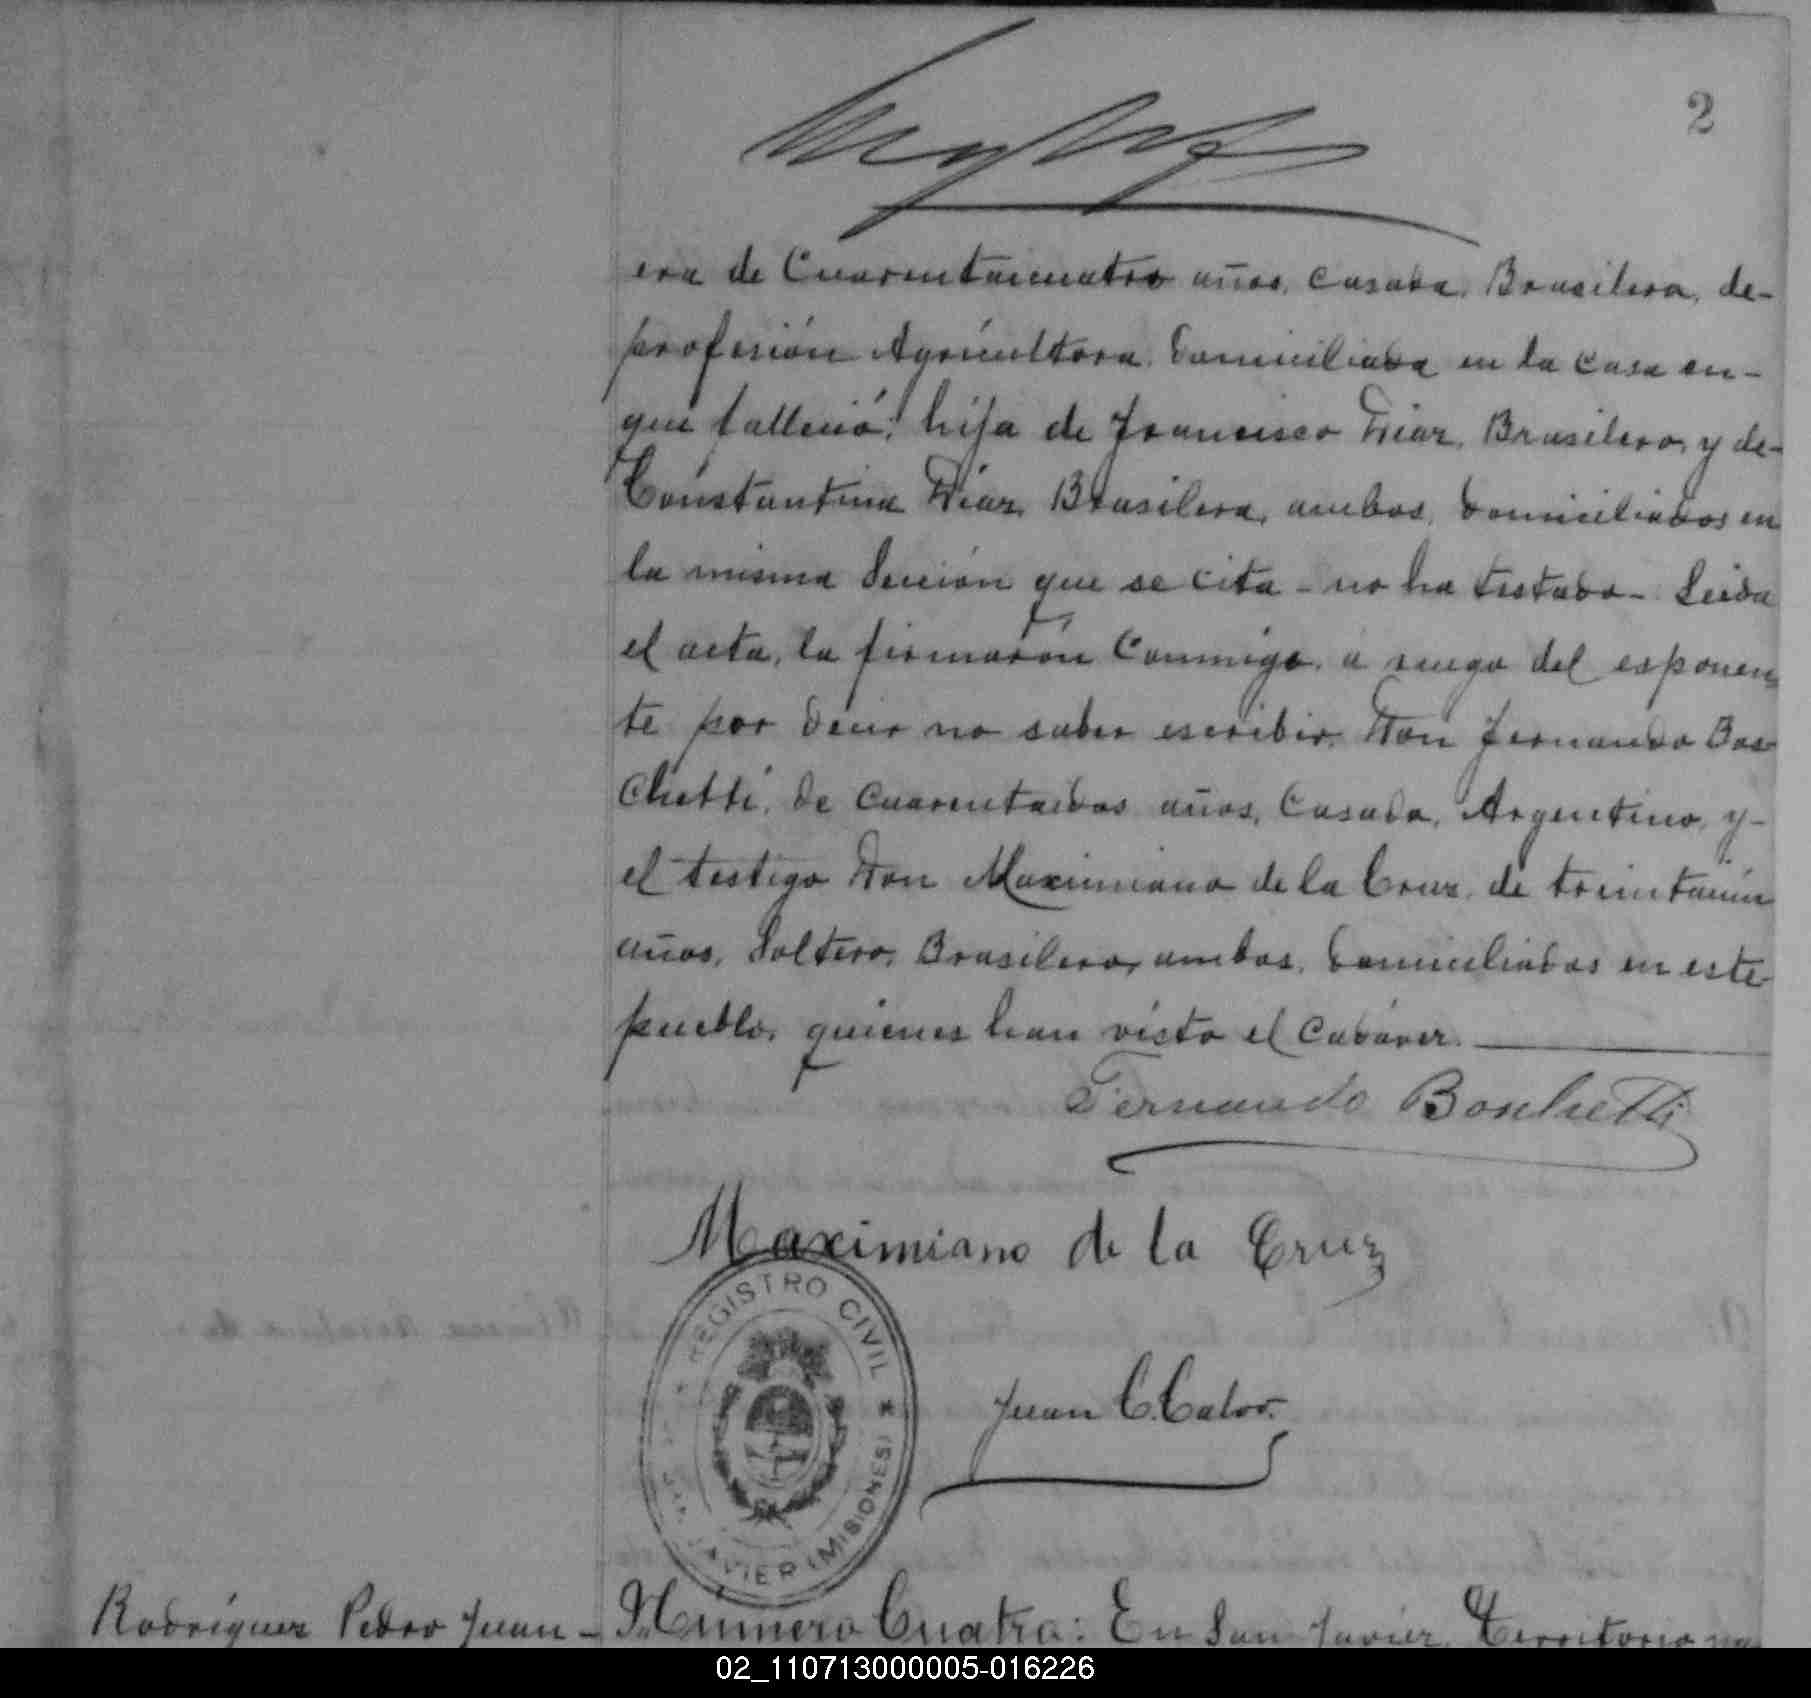 2
era de Cuarentaicuatro años, Casada, Brasilera, de-
profesión Agricultora, domiciliada en la casa en-
que falleció; hija de Francisco Diaz, Brasilero, y de-
Constantina Diaz, Brasilera, ambos, domiciliados en
la misma Sección que se cita - no ha testado - Leida
el acta, la firmarón Conmigo, a ruego del esponen
te por decir no saber escribir, Don Fernando Bos-
chetti, de cuarentaidos años, Casado, Argentino, y-
el testigo Don Maximiano de la Cruz, de treintaiun
años, Soltero, Brasilero, ambos, domiciliados en este-
pueblo, quienes han visto el Cadáver.
Fernando Boschetti
Maximiano de la Cruz
REGISTRO CIVIL
SAN JAVIER (MISIONES)
Juan C. Calvo.
Rodriguez Pedro Juan - Número Cuatro: En San Javier, Territorio na
02_110713000005-016226